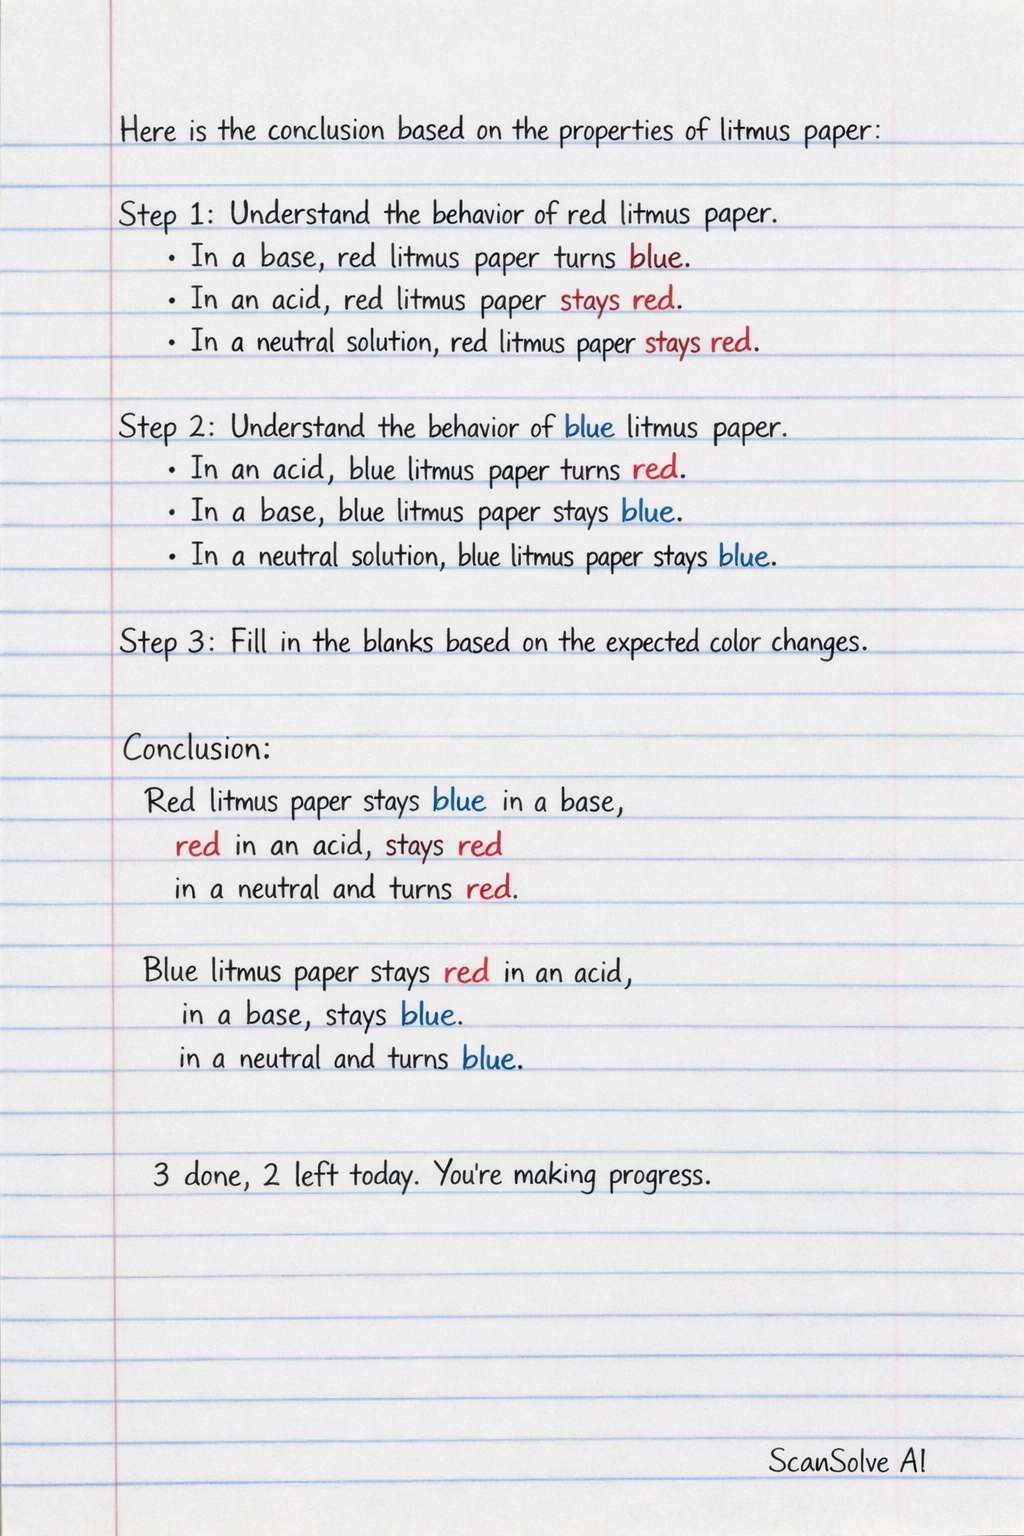 Here is the conclusion based on the properties of litmus paper:
Step 1: Understand the behavior of red litmus paper.
• In a base, red litmus paper turns blue.
• In an acid, red litmus paper stays red.
• In a neutral solution, red litmus paper stays red.
Step 2: Understand the behavior of blue litmus paper.
• In an acid, blue litmus paper turns red.
• In a base, blue litmus paper stays blue.
• In a neutral solution, blue litmus paper stays blue.
Step 3: Fill in the blanks based on the expected color changes.
Conclusion:
Red litmus paper stays blue in a base,
red in an acid, stays red
in a neutral and turns red.
Blue litmus paper stays red in an acid,
in a base, stays blue.
in a neutral and turns blue.
3 done, 2 left today. You're making progress.
ScanSolve AI